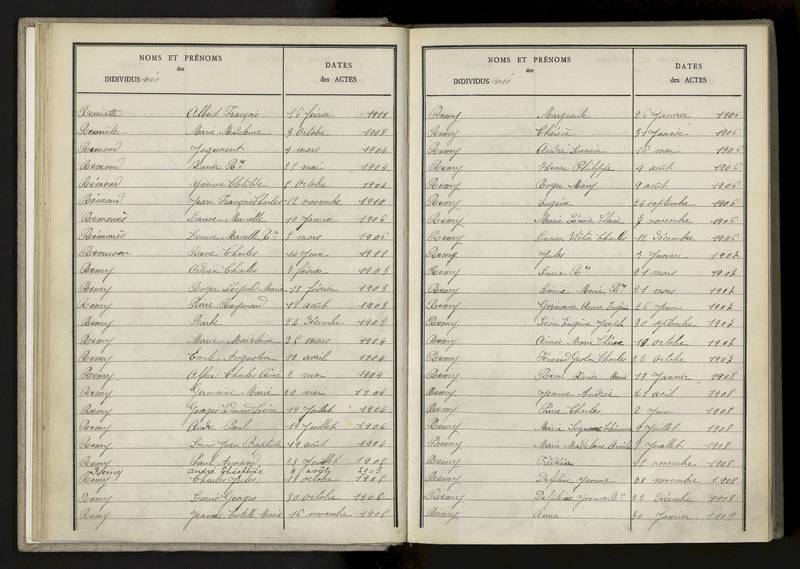 NOMS ET PRÉNOMS
des
INDIVIDUS nés
DATES
des ACTES
Albert François 16 février 1911
Marie Madeleine 3 octobre 1908
Remond 4 mars 1904
Remond 28 mai 1904
Rémond Yvonne Clotilde 8 octobre 1904
Rémond Jean François Charles 12 novembre 1910
Marcelle 10 Janvier 1906
Louise Marcelle Ron 8 mars 1906
Charles 14 Juin 1911
Remy Charles 3 février 1903
Remy Roger Léopold Marie 18 février 1903
Remy Pierre Raymond 12 août 1903
Remy 24 Décembre 1903
Remy Marie Madeleine 28 mars 1904
Remy Emile Augustin 18 avril 1904
Remy Charles Aimé 2 mai 1904
Remy Germaine Marie 20 mai 1904
Remy Georges 14 Juillet 1904
Remy André Paul 19 Juillet 1904
Remy Louis Jean Baptiste 19 août 1904
Remy Paul Armand 28 Juillet 1905
Remy André Théophile août
Remy Charles Jules 18 octobre 1905
Remy Louis Georges 30 octobre 1905
Remy Jeanne Marie 16 novembre 1905
NOMS ET PRÉNOMS
des
INDIVIDUS nés
DATES
des ACTES
Remy Marguerite 26 Janvier 1906
Remy Thérèse 31 Janvier 1906
Remy André Lucien 16 mai 1906
Remy Henri Philippe 4 août 1906
Remy Roger 9 août 1906
Remy Eugène 24 septembre 1906
Remy Marie novembre 1906
Remy Lucien Victor Charles 12 Décembre 1906
Remy Jules 3 Janvier 1907
Remy Lucie Ron 21 mars 1907
Remy Marie Ron 21 mars 1907
Remy Germaine 26 Juin 1907
Remy Léon Eugène Joseph 20 septembre 1907
Remy Aimée Marie Thérèse 19 octobre 1907
Remy Fernand Gaston Charles 22 octobre 1907
Remy René Xavier Marie 18 Janvier 1908
Remy Jeanne Andrée 21 avril 1908
Remy Pierre Charles 2 Juin 1908
Remy Marie Suzanne 9 Juillet 1908
Remy Marie Madeleine 9 Juillet 1908
Remy 18 novembre 1908
Remy Delphine Yvonne 28 novembre 1908
Remy Delphine Yvonne Ron 22 Décembre 1908
Remy Anna 30 Janvier 1909